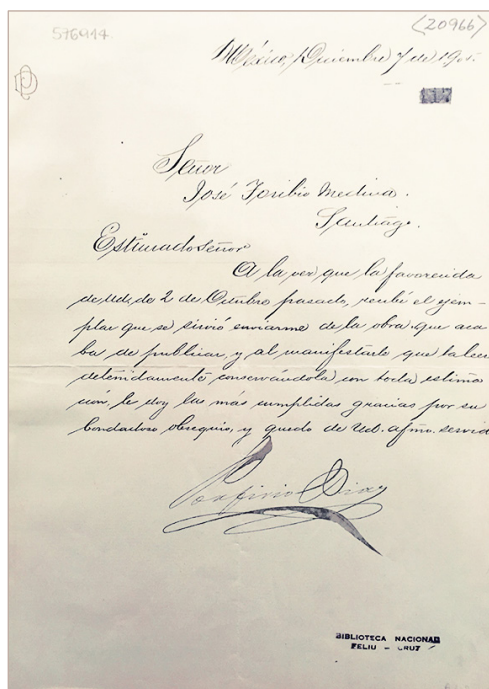 576944.
(20966)
México, Diciembre 7 de 190
Señor
José Toribio Medina.
Santiago.
Estimado Señor
A la vez que la favorecida
de Ud, de 2 de Octubre pasado, recibí el ejem-
plar que se sirvió enviarme de la obra que aca
ba de publicar, y al manifestarle que la leeré
detenidamente conservándola con toda estima
ción, le doy las más cumplidas gracias por su
bondadoso obsequio, y quedo de Ud. afmo. servid
Porfirio Diaz
BIBLIOTECA NACIONAL
FELIU - CRUZ